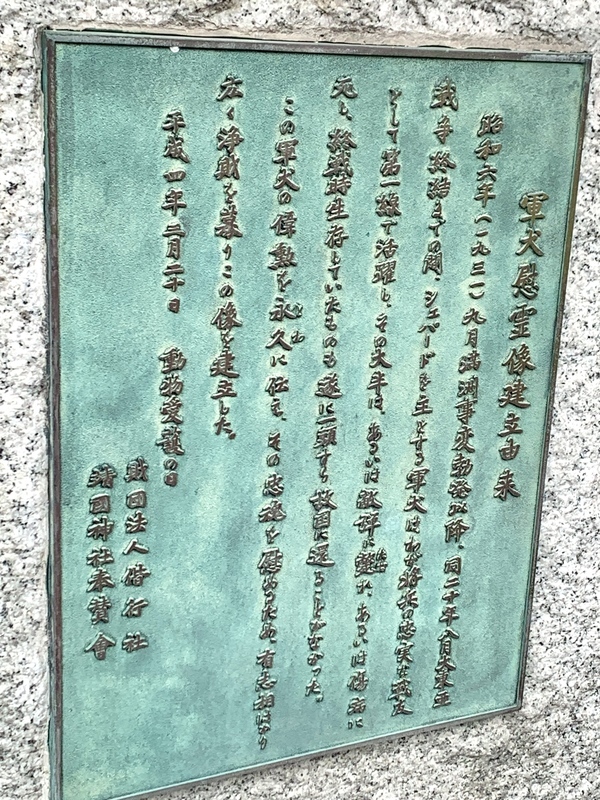 軍犬慰霊像建立由来
昭和六年(一九三一)九月満洲事変勃発以降、同二十年八月大東亜
戦争終結までの間、シェパードを主とする軍犬はわが将兵の忠実な戦友
として第一線で活躍し、その大半は、あるいは敵弾に斃れ、あるいは傷病に
元も、終戦時生存していたものも遂に一頭すら故国に還ることがなかった。
この軍犬の偉勲を永久に伝え、その忠魂を慰めるため、有志相はかり
とわ
広く浄財を募りこの像を建立した。
平成四年三月二十日 動物愛護の日
財団法人偕行社
靖國神社奉賛會